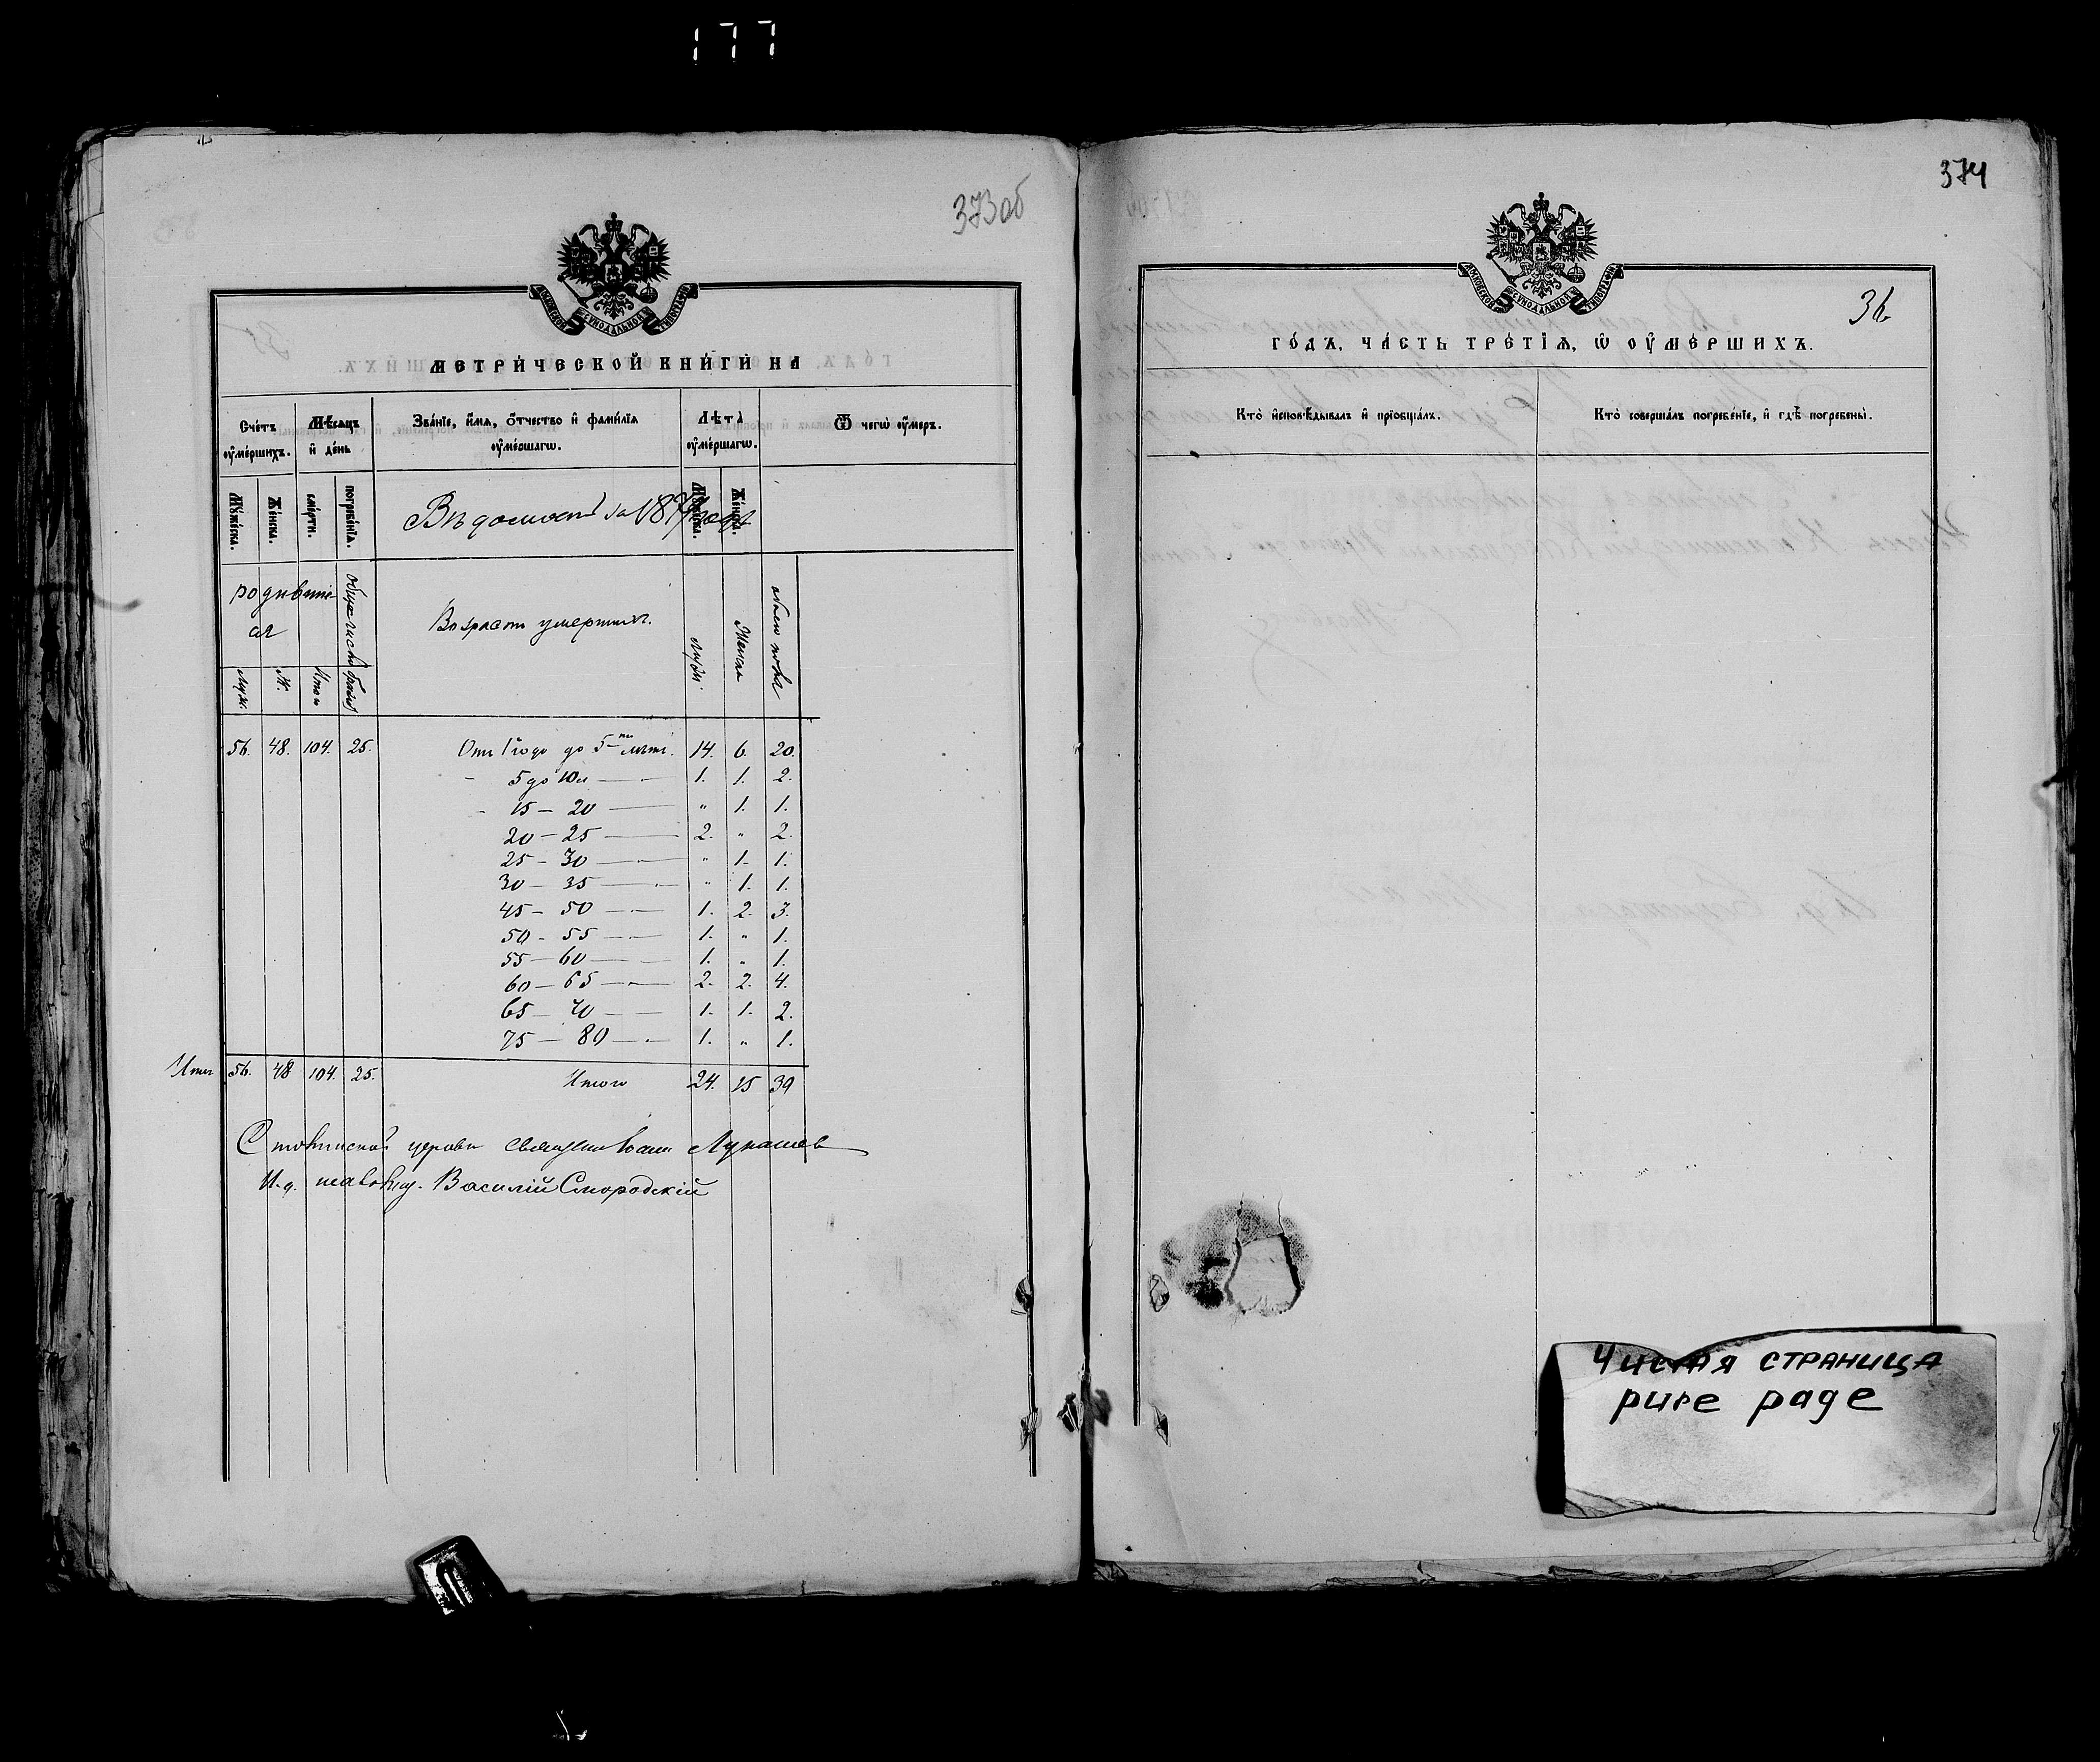 177
373об
МОСКОВСКОЙ СУНОДАЛЬНОЙ ТИПОГРАФІИ
МЕТРИ́ЧЕСКОЙ КНИ́ГИ НА
Сче́тъ оу҆ме́ршихъ.
Мѣ́сѧцъ и҆ де́нь
Зва́нїе, и҆́мѧ, ѻ҆́тчество и҆ фамилїѧ оу҆ме́ршагѡ.
Лѣ́та оу҆ме́ршагѡ.
Ѿ чегѡ̀ оу҆́меръ.
Мꙋ́жеска.
Же́нска.
сме́рти.
погребе́нїѧ.
Мꙋ́жеска.
Же́нска.
Вѣдомость за 187 годъ
родивші
ся
общее число браковъ
Возрастъ умершихъ.
Муж.
Женск
обоего пола
Муж.
Ж.
Итого
56. 48. 104. 25. Отъ 1 года до 5-ти лѣтъ. 14. 6. 20.
- 5 до 10 — 1. 1. 2.
- 15 — 20 — " 1. 1.
20 — 25 — 2. " 2.
25 — 30 — " 1. 1.
30 — 35 — " 1. 1.
45 — 50 — 1. 2. 3.
50 - 55 — 1. " 1.
55 — 60 — 1. " 1.
60 — 65 — 2. 2. 4.
65 — 70 — 1. 1. 2.
75 — 80 — 1. " 1.
Итог 56. 48 104. 25. Итого 24. 15 39
церкви священник Іоанн Лукашев
И.д. псаломщ. Василій Смородскій
374
МОСКОВСКОЙ СУНОДАЛЬНОЙ ТИПОГРАФІИ
36.
ГО́ДЪ, ЧА́СТЬ ТРЕ́ТІѦ, Ѡ҆ ОУ҆МЕ́РШИХЪ.
Кто̀ и҆сповѣ́дывалъ и҆ прїѡбща́лъ.
Кто̀ соверша́лъ погребе́нїе, и҆ гдѣ̀ погребены̀.
Чистая страница
pure page